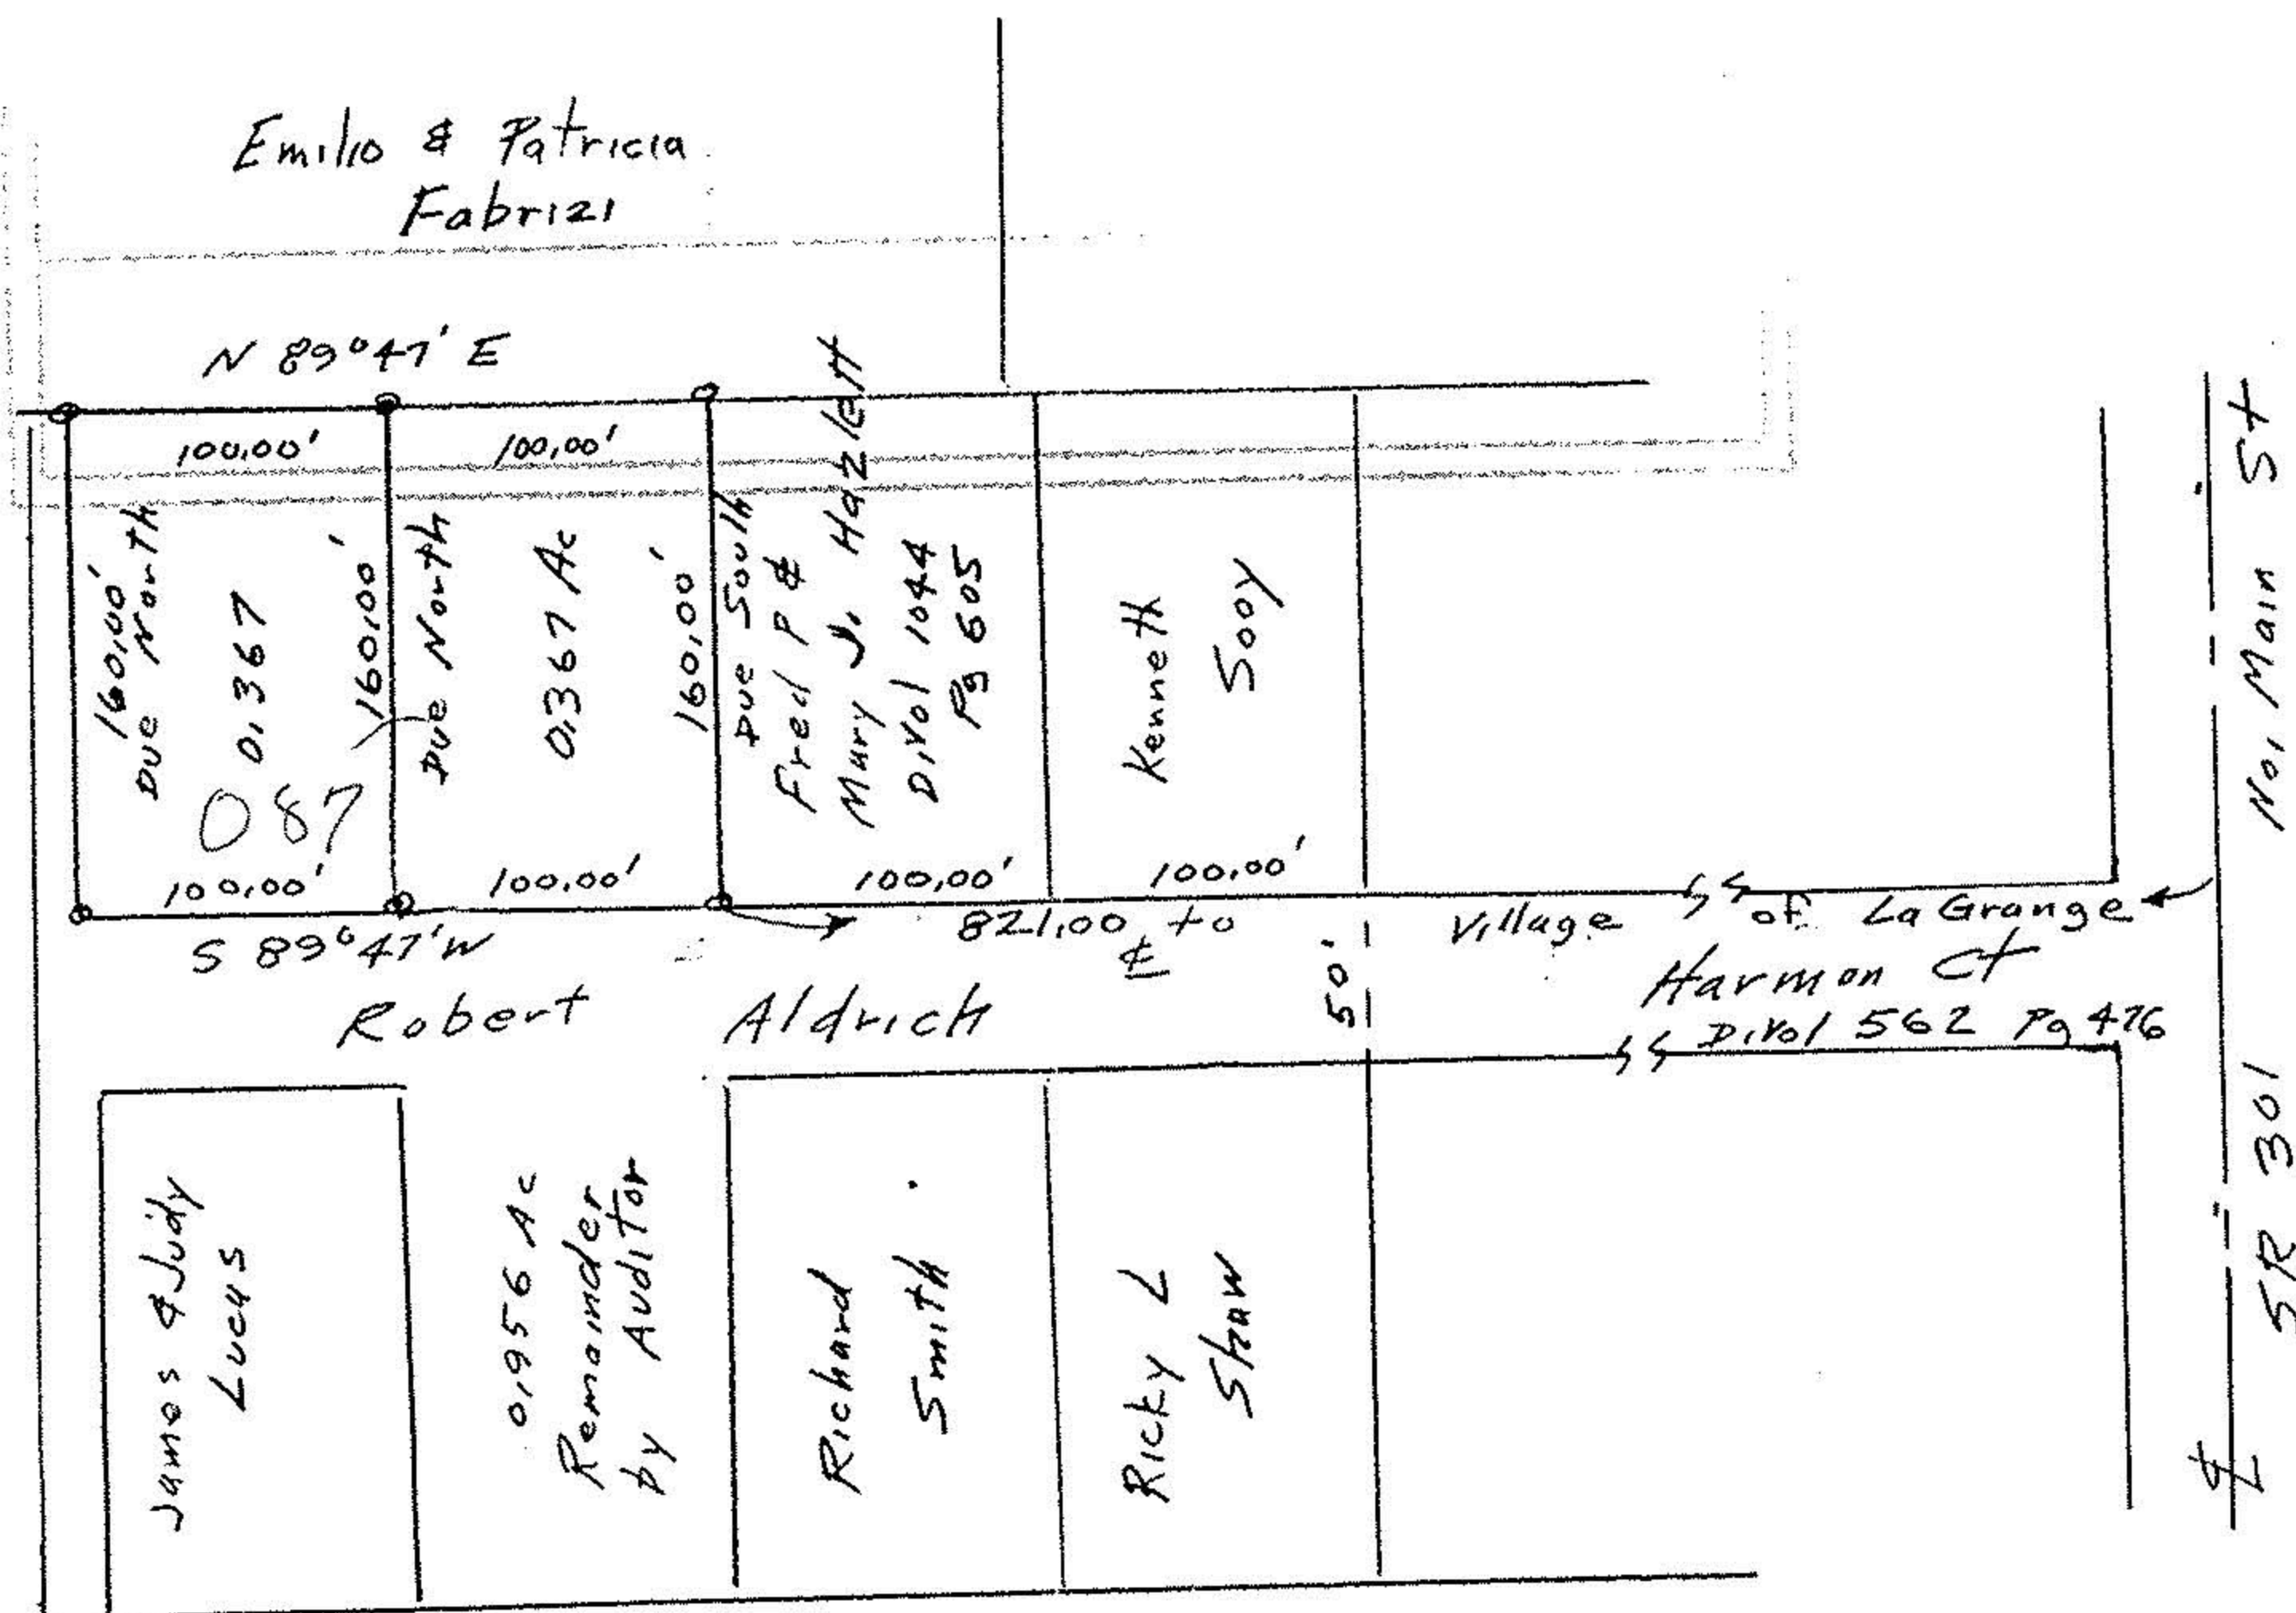 Emilio & Patricia
Fabrizi
N 89°47' E
100.00'
100.00'
160.00'
Due North
0.367
160.00'
Due North
0.367 Ac
160.00'
Due South
Fred P &
Mary J. Hazlett
D.Vol 1044
Pg 605
Kenneth
Sooy
087
100.00'
100.00'
100.00'
100.00'
S 89°47' W
821.00 to
℄
Village of LaGrange
Harmon Ct
D.Vol 562 Pg 476
50'
Robert Aldrich
James & Judy
Lucas
0.956 Ac
Remainder
by Auditor
Richard
Smith
Ricky L
Shaw
No. Main St
SR 301
℄